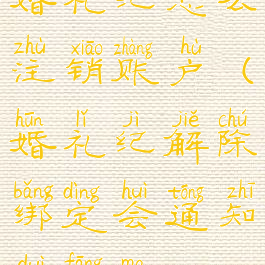 婚礼纪怎么
zhù xiāo zhàng hù
注销账户（
hūn lǐ jì jiě chú
婚礼纪解除
bǎng dìng huì tōng zhī
绑定会通知
duì fāng ma